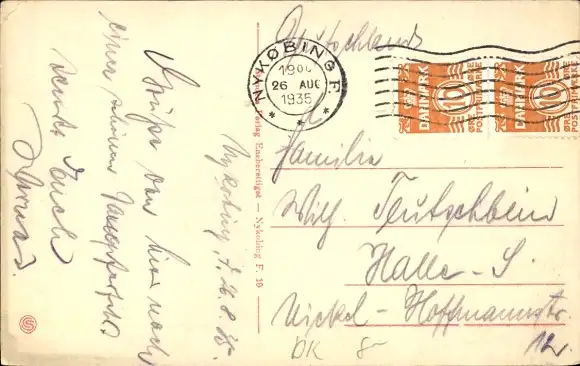 Deutschland
NYKØBING F.
19 00
26 AUG
1935
DANMARK
10
ØRE
POSTFÆRGE
DANMARK
10
ØRE
Familie
Wilh. Teutschbein
Halle-S.
Nickel-Hoffmannstr.
12
DK 8-
Verlag Eneberettiget — Nykøbing F. 10
Nykøbing F. 26.8.35.
Grüße von hier nach
einer schönen
sendet Euch